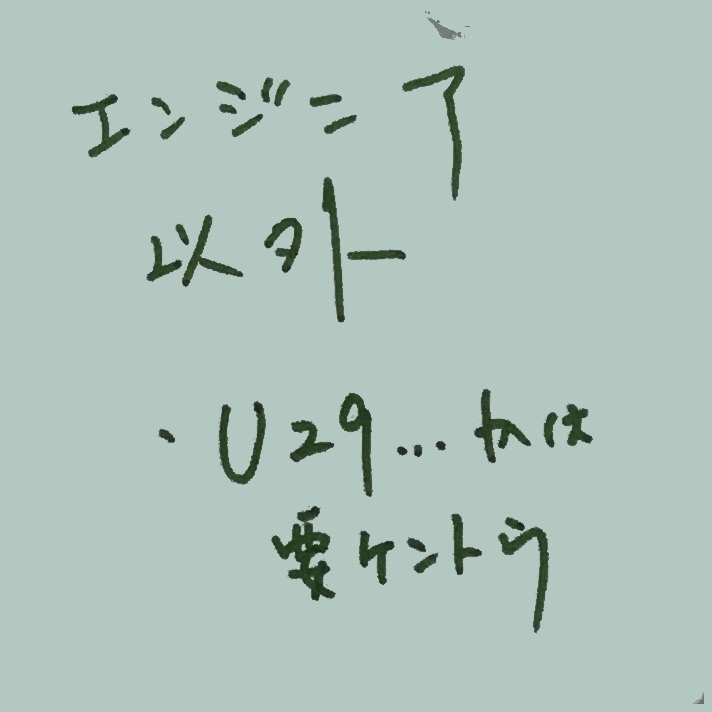 エンジニア
以外
・U29…かは
要ケントウ